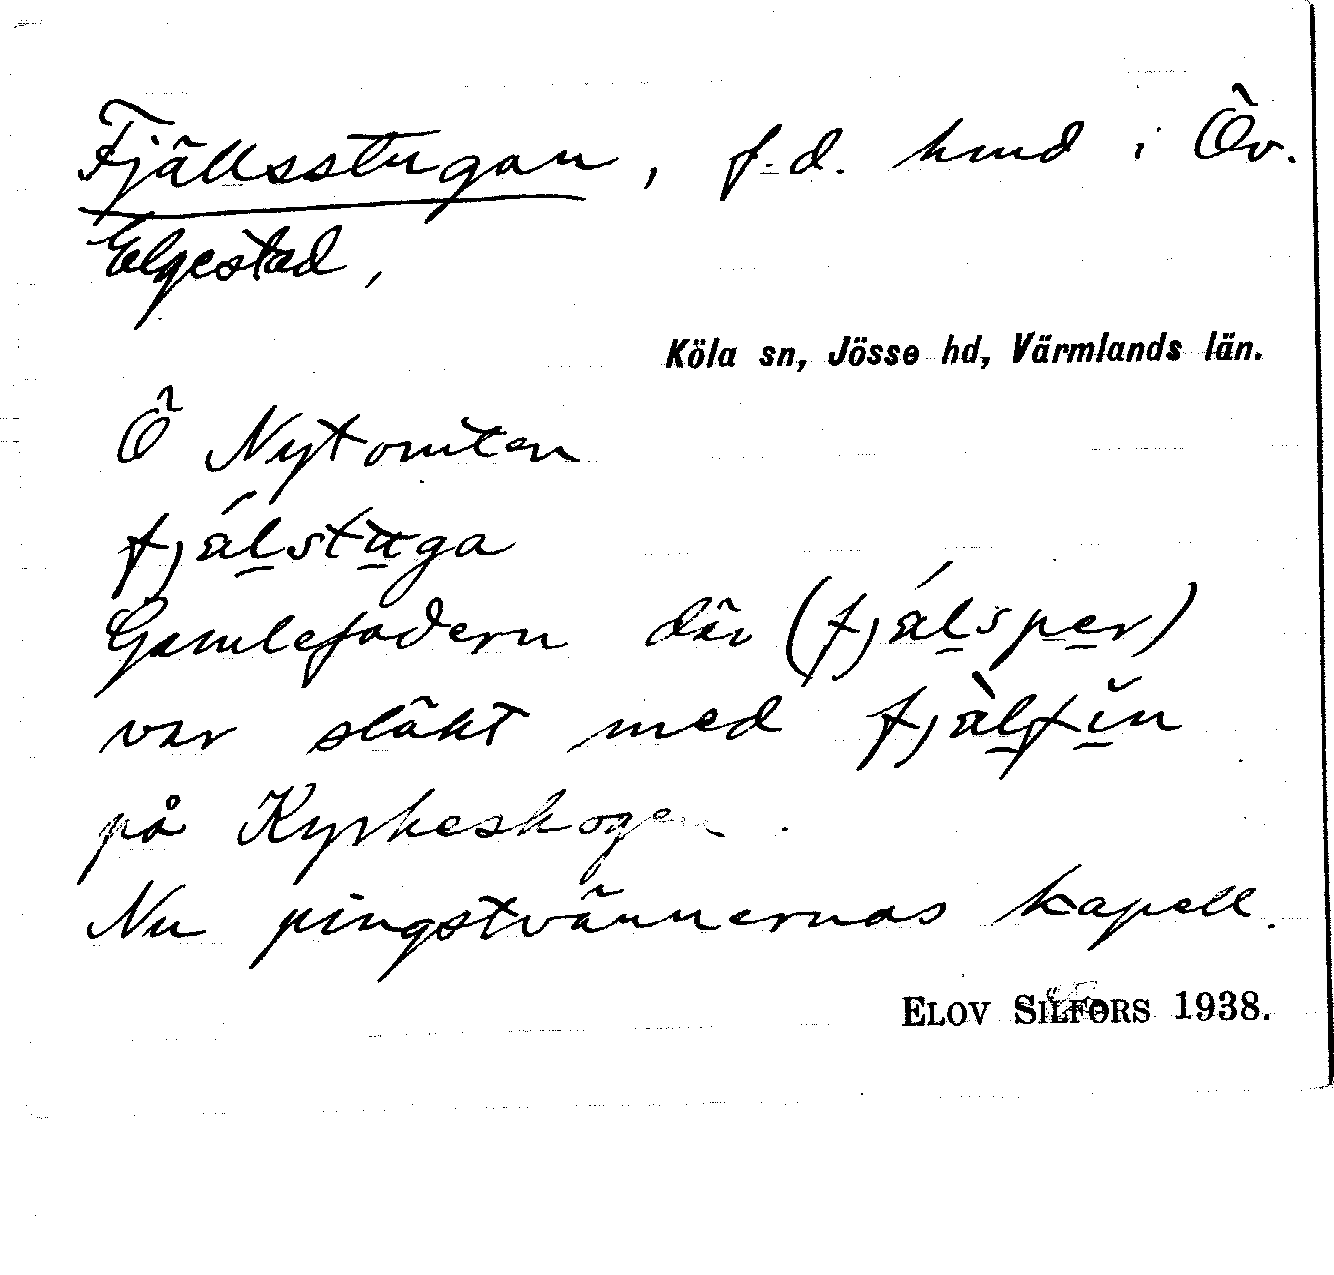 Fjällsstugan, f.d. hmd i Öv.
Elgestad,
Köla sn, Jösse hd, Värmlands län.
Ö Nytomten
fjälstuga
Gamlefadern där (fjälsper)
var släkt med fjälfin
på Kyrkeskogen.
Nu pingstvännernas kapell.
ELOV SILFORS 1938.